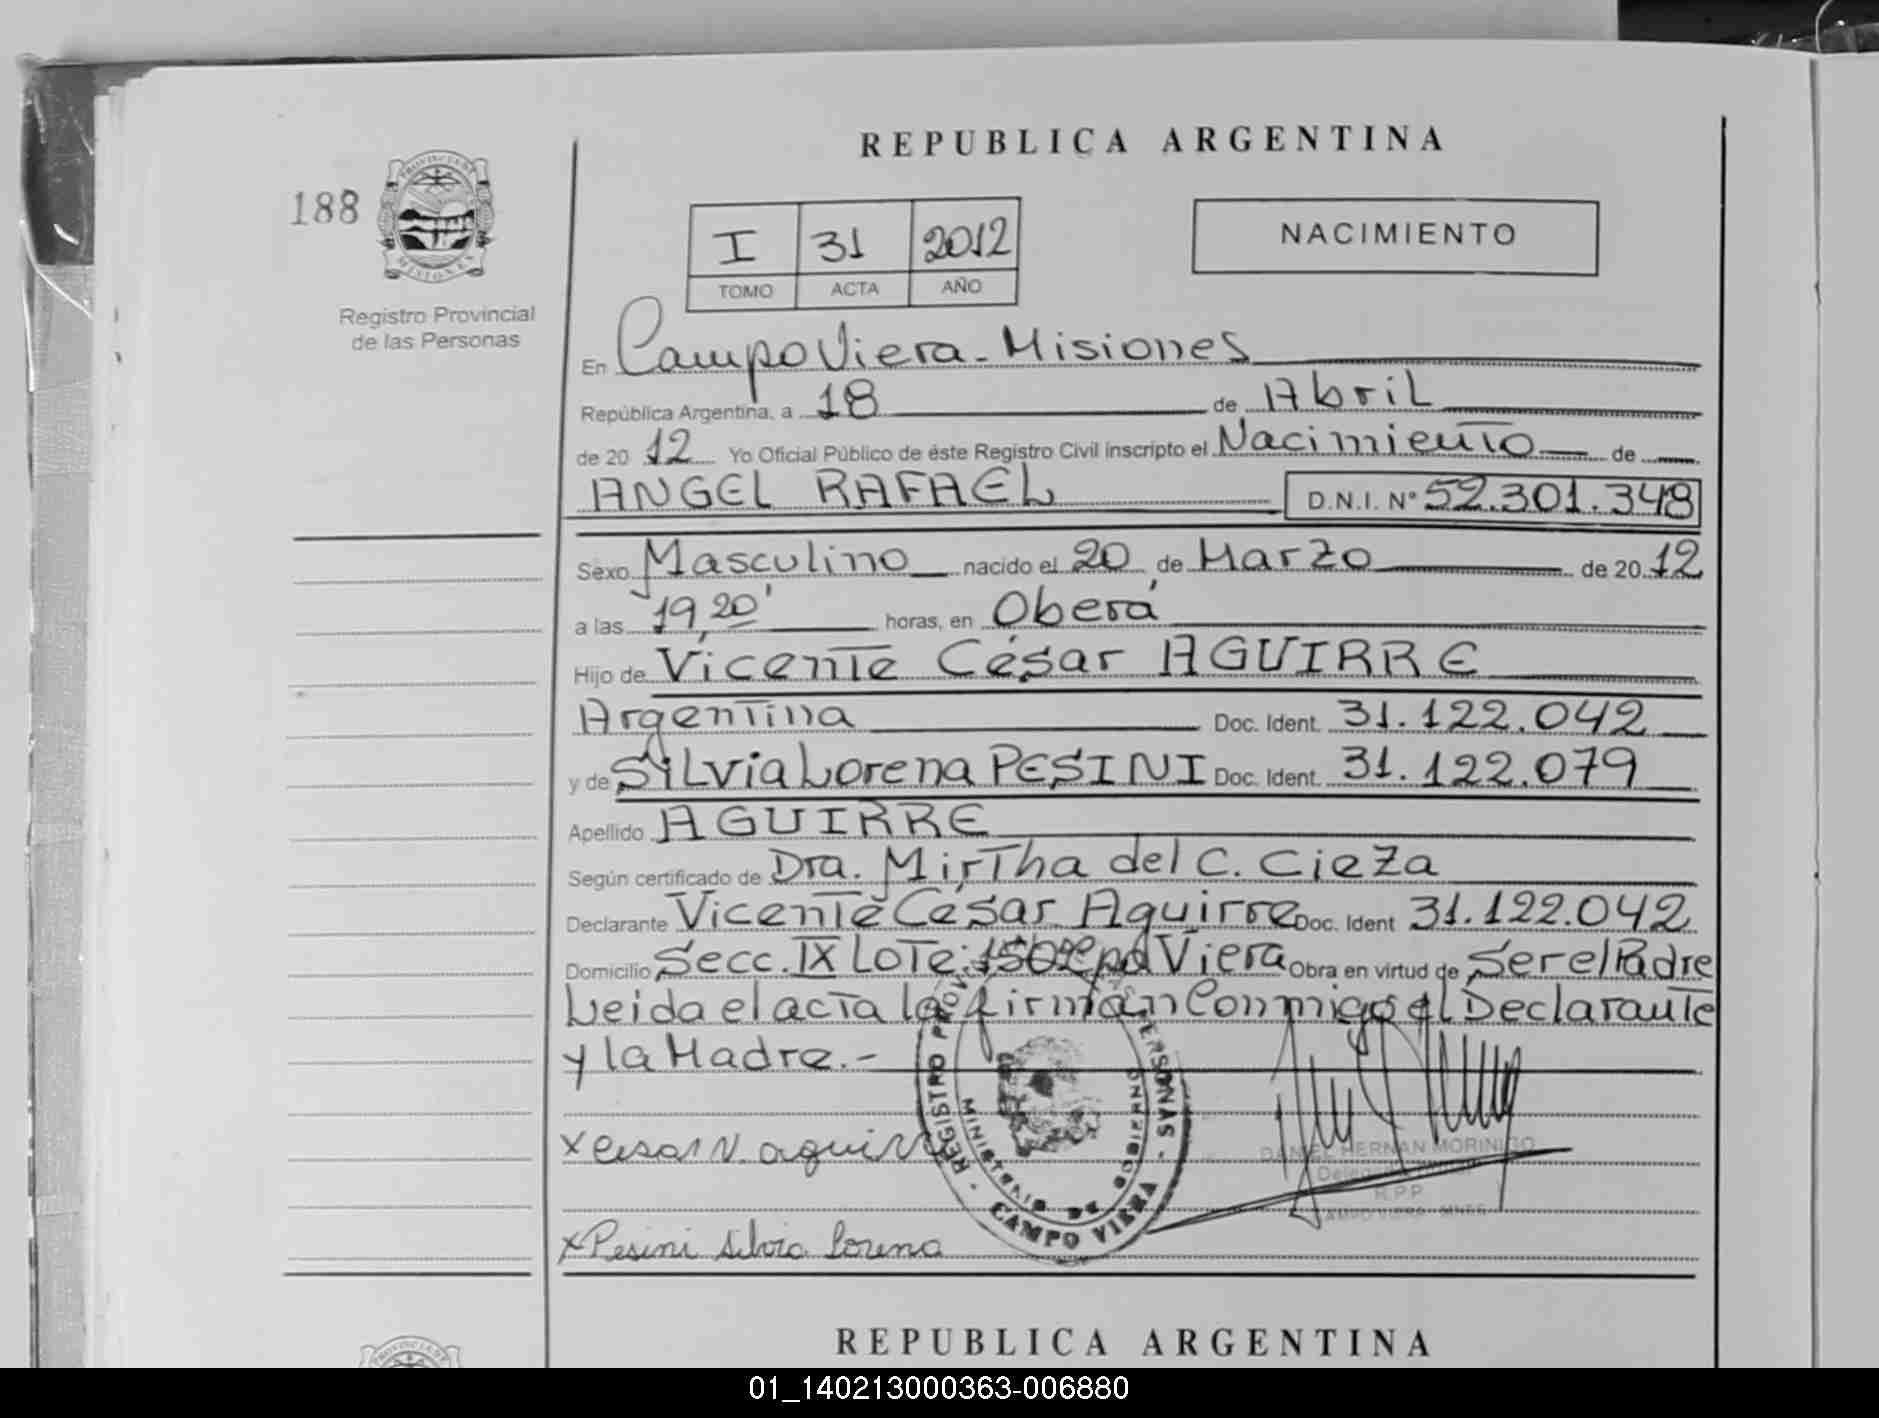 REPUBLICA ARGENTINA
188
PROVINCIA DE
MISIONES
Registro Provincial
de las Personas
I 31 2012
TOMO ACTA AÑO
NACIMIENTO
En Campo Viera - Misiones
República Argentina, a 18 de Abril
de 20 12 Yo Oficial Público de éste Registro Civil inscripto el Nacimiento de
ANGEL RAFAEL D.N.I. N° 52.301.348
Sexo Masculino nacido el 20 de Marzo de 20 12
a las 19,20' horas, en Oberá
Hijo de Vicente César AGUIRRE
Argentina Doc. Ident. 31.122.042
y de Silvia Lorena PESINI Doc. Ident. 31.122.079
Apellido AGUIRRE
Según certificado de Dra. Mirtha del C. Cieza
Declarante Vicente César Aguirre Doc. Ident 31.122.042
Domicilio Secc. IX Lote: Viera Obra en virtud de Ser el Padre
Leida el acta la firman Conmigo el Declarante
y la Madre.-
REGISTRO PROVINCIAL DE LAS PERSONAS - CAMPO VIERA -
MINISTERIO DE GOBIERNO
DANIEL HERNAN MORINIGO
R.P.P.
CAMPO VIERA - MNES
x Cesar V. aguirre
x Pesini Silvia Lorena
REPUBLICA ARGENTINA
01_140213000363-006880